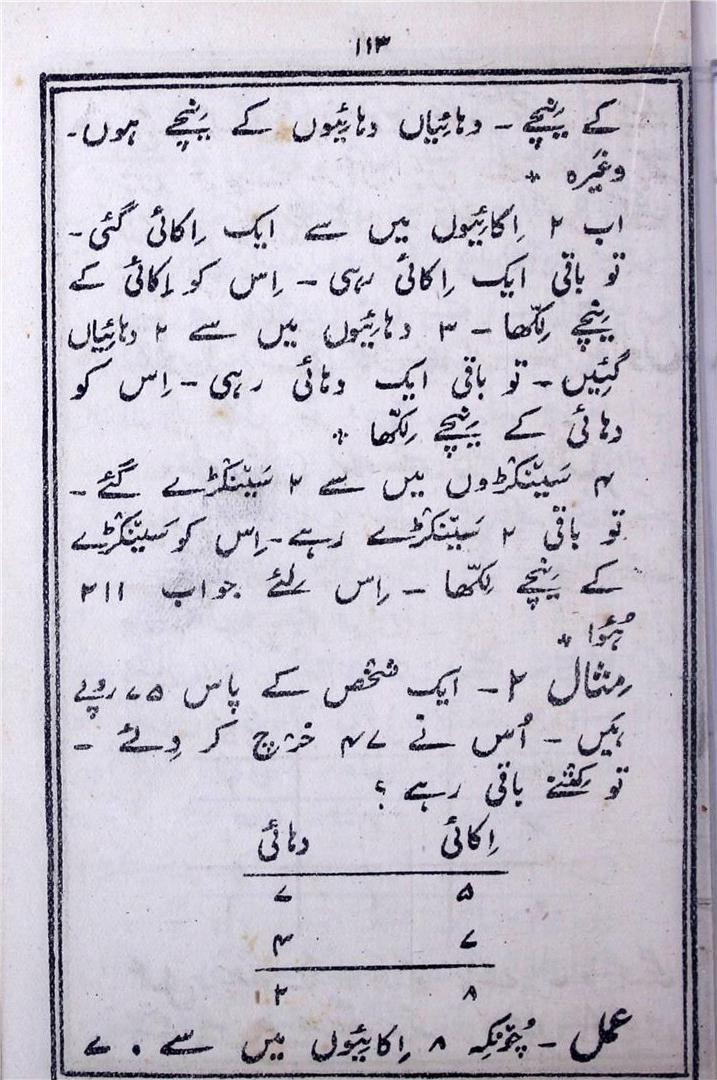 ۱۱۳
کے نیچے - دہائیاں دہائیوں کے نیچے ہوں-
وغیرہ *
اب ۲ اِکائیوں میں سے ایک اِکائی گئی -
تو باقی ایک اِکائی رہی - اِس کو اِکائی کے
نیچے لِکھّا - ۳ دہائیوں میں سے ۲ دہائیاں
گئیں - تو باقی ایک دہائی رہی - اِس کو
دہائی کے نیچے لِکھّا *
۴ سَینکڑوں میں سے ۲ سَینکڑے گئے -
تو باقی ۲ سَینکڑے رہے - اِس کو سَینکڑے
کے نیچے لِکھّا - اِس لئے جواب ۲۱۱
ہُوا *
مِثال ۲ - ایک شخص کے پاس ۷۵ روپے
ہَیں - اُس نے ۴۷ خرچ کر دِئے -
تو کِتنے باقی رہے ؟
اِکائی دہائی
۵ ۷
۷ ۴
۸ ۲
عمل - چُونکہ ۸ اِکائیوں میں سے ۰ ۷